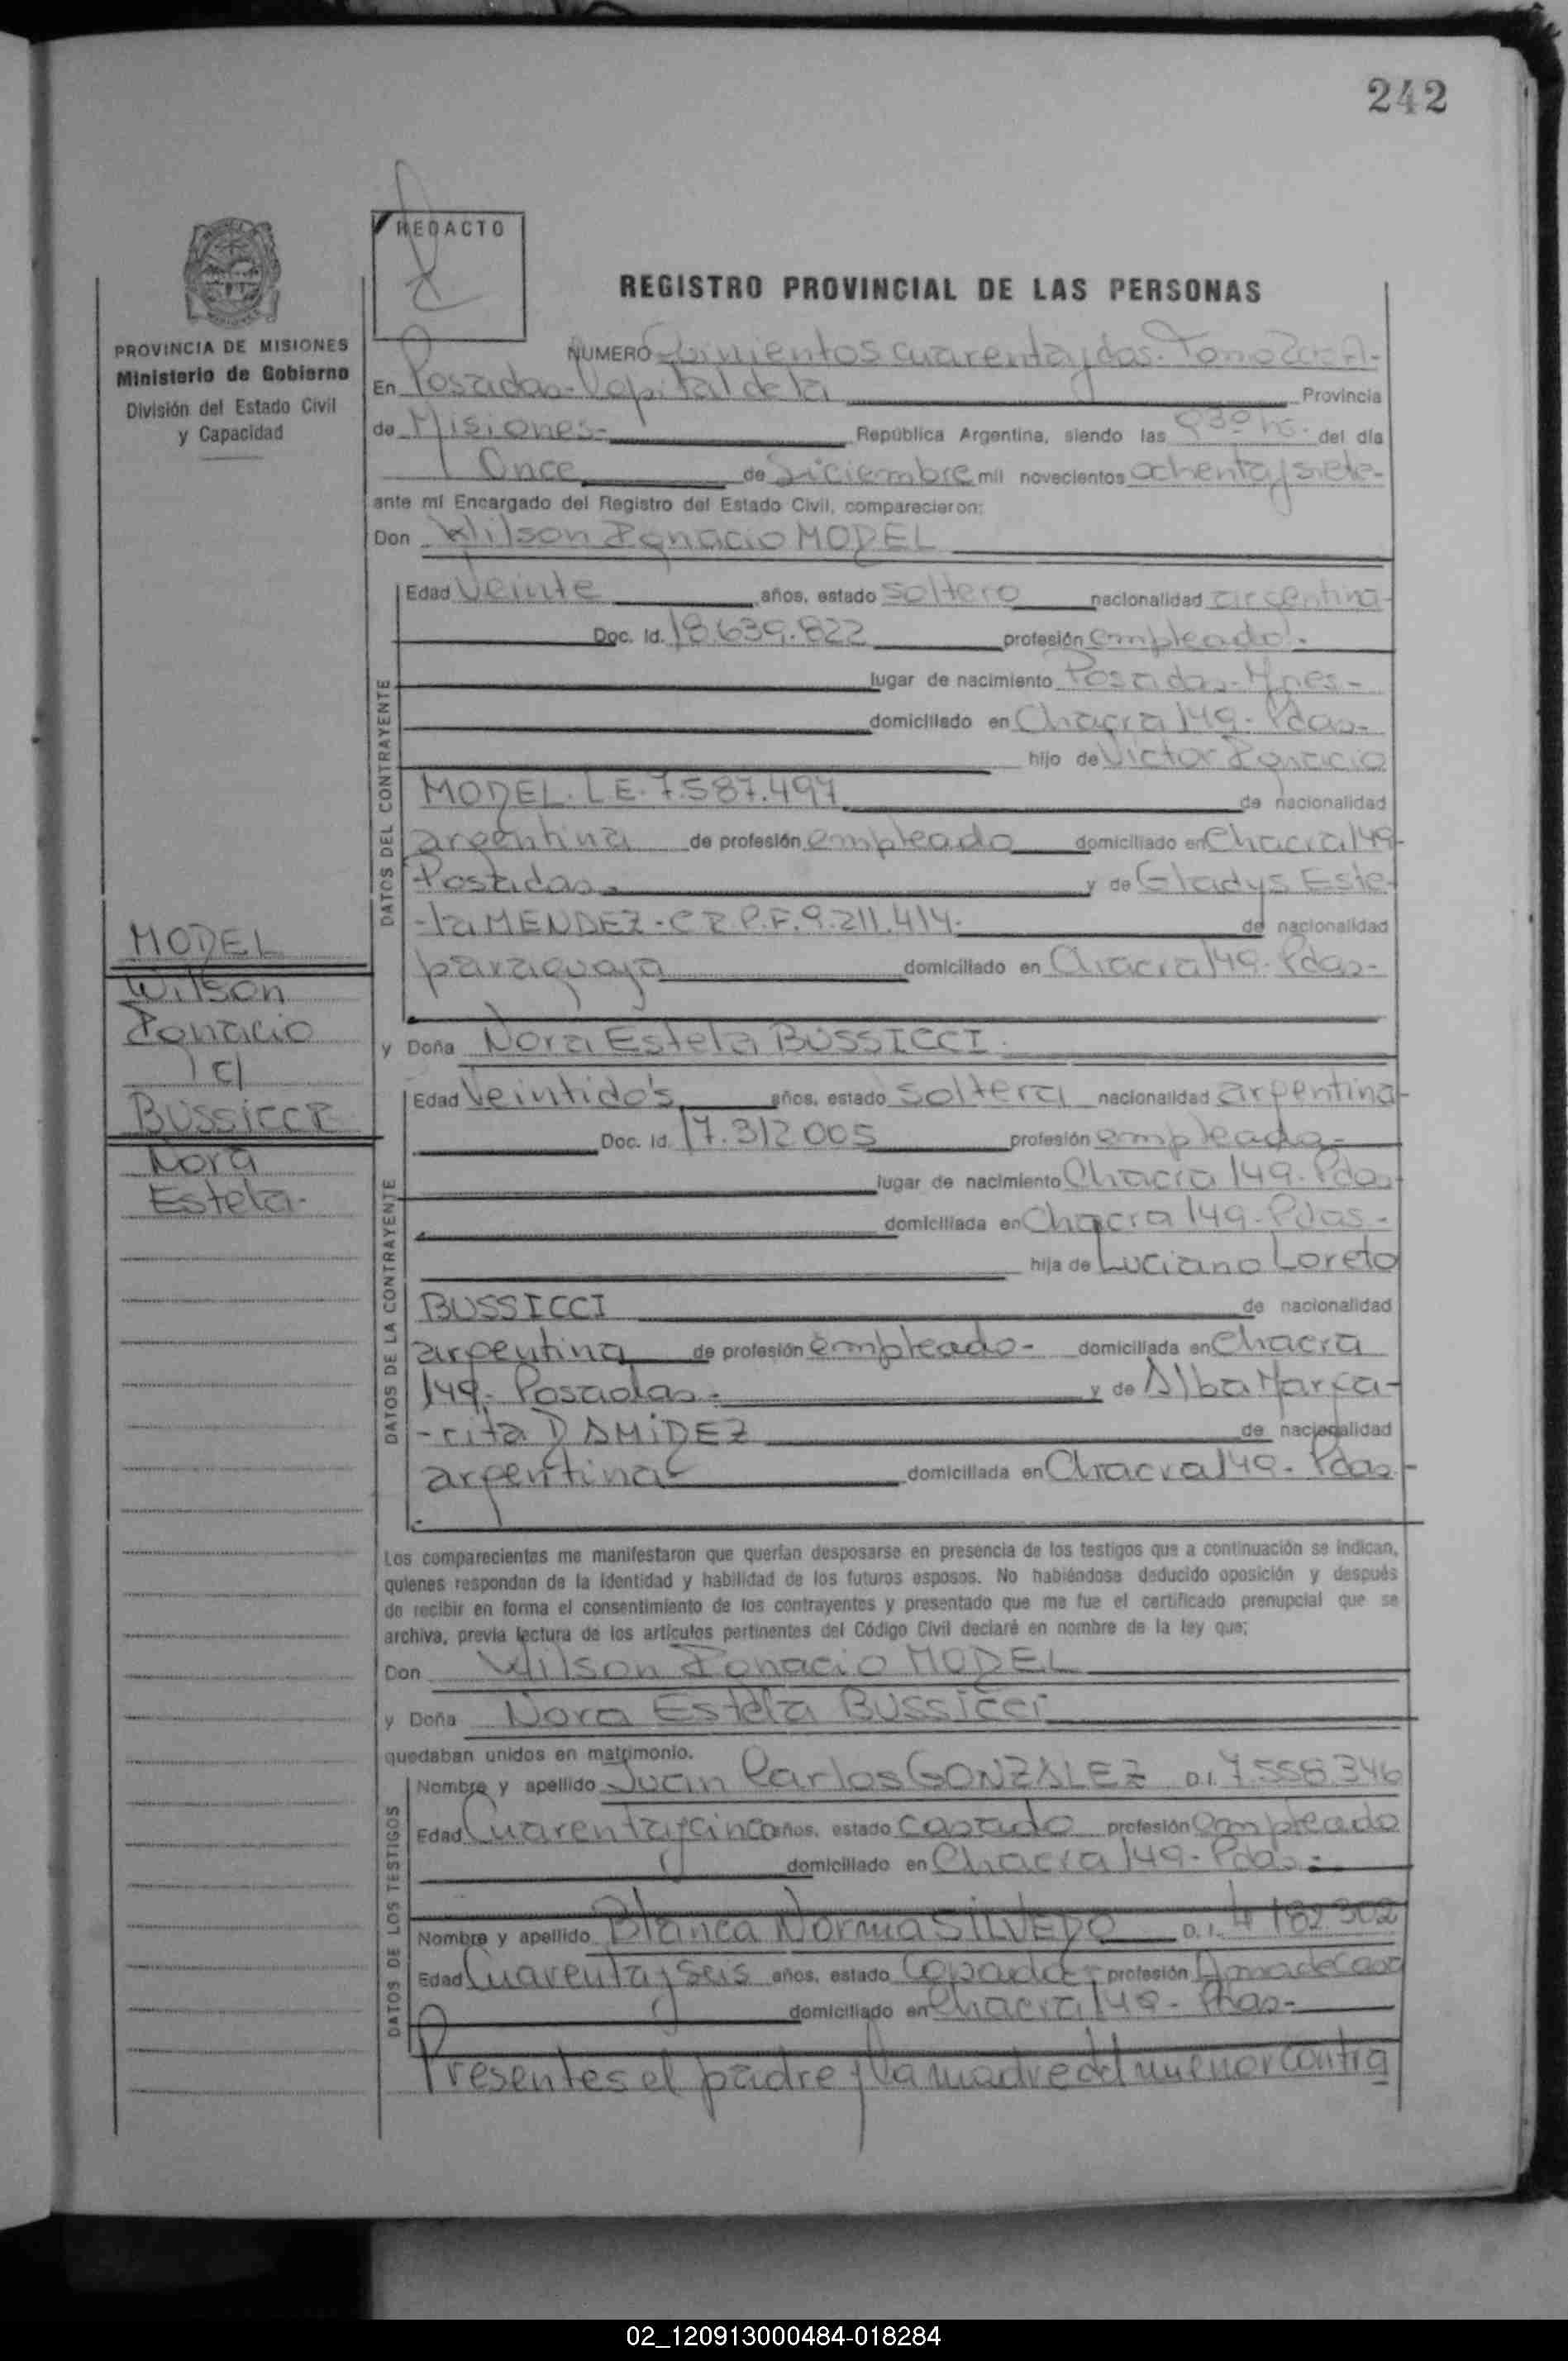 242
REDACTO
REGISTRO PROVINCIAL DE LAS PERSONAS
PROVINCIA DE MISIONES
Ministerio de Gobierno
División del Estado Civil
y Capacidad
NUMERO Quinientos cuarenta y dos. Tomo A-
En Posadas- Capital de la Provincia
de Misiones- República Argentina, siendo las 9 30 hs. del día
Once de Diciembre mil novecientos ochenta y siete-
ante mí Encargado del Registro del Estado Civil, comparecieron:
Don Wilson Ignacio MODEL
DATOS DEL CONTRAYENTE
Edad Veinte años, estado soltero nacionalidad argentina-
Doc. Id. 18.639.822 profesión empleado.-
lugar de nacimiento Posadas-Mnes-
domiciliado en Chacra 149- Pdas-
hijo de Victor Ignacio
MODEL. L.E. 7.587.497 de nacionalidad
argentina de profesión empleado domiciliado en Chacra 149-
Posadas. y de Gladys Este-
-la MENDEZ-C.I.P.F. 9.211.414- de nacionalidad
paraguaya domiciliado en Chacra 149- Pdas-
MODEL
Wilson
Ignacio
c/
BUSSICCI
Nora
Estela-
y Doña Nora Estela BUSSICCI.
DATOS DE LA CONTRAYENTE
Edad Veintidós años, estado soltera nacionalidad argentina-
Doc. Id. 17.312.005 profesión empleada-
lugar de nacimiento Chacra 149- Pdas-
domiciliada en Chacra 149- Pdas-
hija de Luciano Loreto
BUSSICCI de nacionalidad
argentina de profesión empleado- domiciliada en Chacra
149- Posadas- y de Alba Marga-
-rita DAMIDEZ de nacionalidad
argentina- domiciliada en Chacra 149- Pdas-
Los comparecientes me manifestaron que querían desposarse en presencia de los testigos que a continuación se indican,
quienes responden de la identidad y habilidad de los futuros esposos. No habiéndose deducido oposición y después
de recibir en forma el consentimiento de los contrayentes y presentado que me fue el certificado prenupcial que se
archiva, previa lectura de los artículos pertinentes del Código Civil declaré en nombre de la ley que;
Don Wilson Ignacio MODEL
y Doña Nora Estela BUSSICCI
quedaban unidos en matrimonio.
DATOS DE LOS TESTIGOS
Nombre y apellido Juan Carlos GONZALEZ D.I. 7.558.346
Edad Cuarenta y cinco años, estado casado profesión empleado
domiciliado en Chacra 149- Pdas-
Nombre y apellido Blanca Norma SILVERO D.I. 4.182.302
Edad Cuarenta y seis años, estado Casada- profesión Ama de Casa
domiciliado en Chacra 149- Pdas-
Presentes el padre y la madre del menor contra
02_120913000484-018284